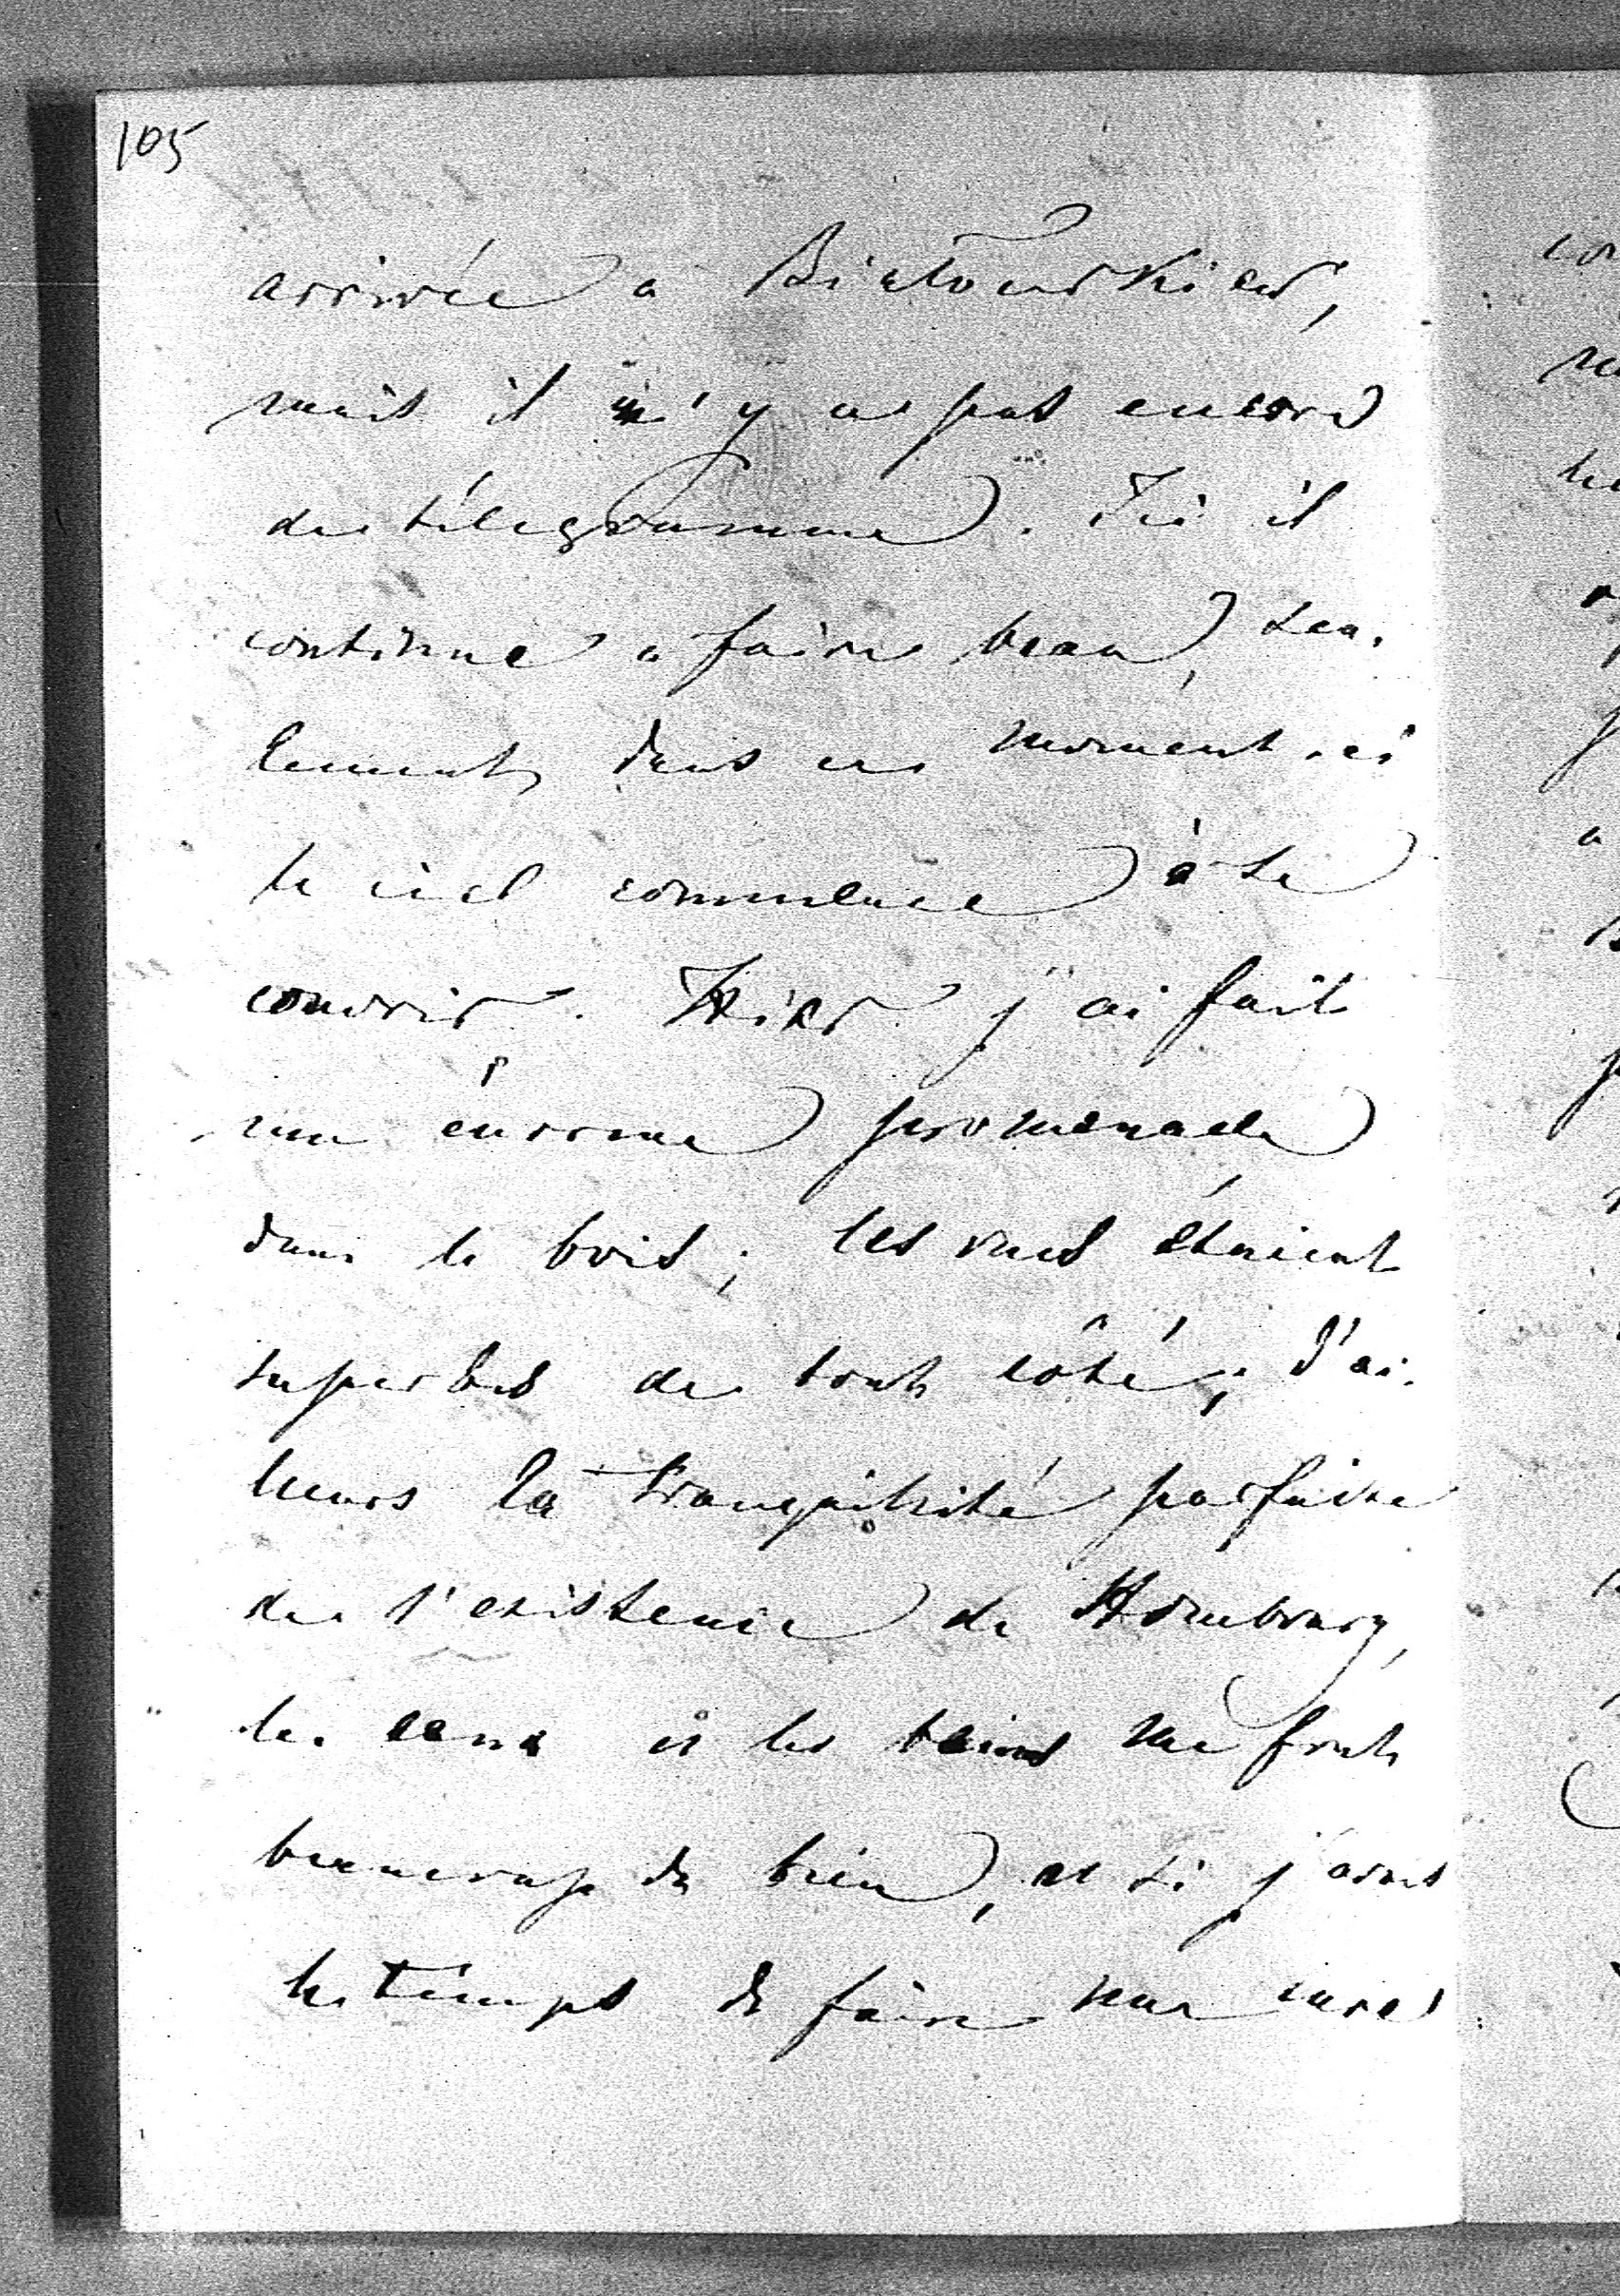 105
arrivée a
mais il n'y a pas encore
de télegramme. Ici il
continue a faire beau, seu-
lement, dans ce moment-ci
le ciel commence à se
couvrir. Hier j'ai fait
une énorme promenade
dans le bois; les vues étaient
superbes de tout côté; d'ai-
leurs la tranquilité parfaite
de l'existence de Hombourg,
les eaux et les bains me font
beaucoup de bien, et si j'avais
le temps de faire une cure